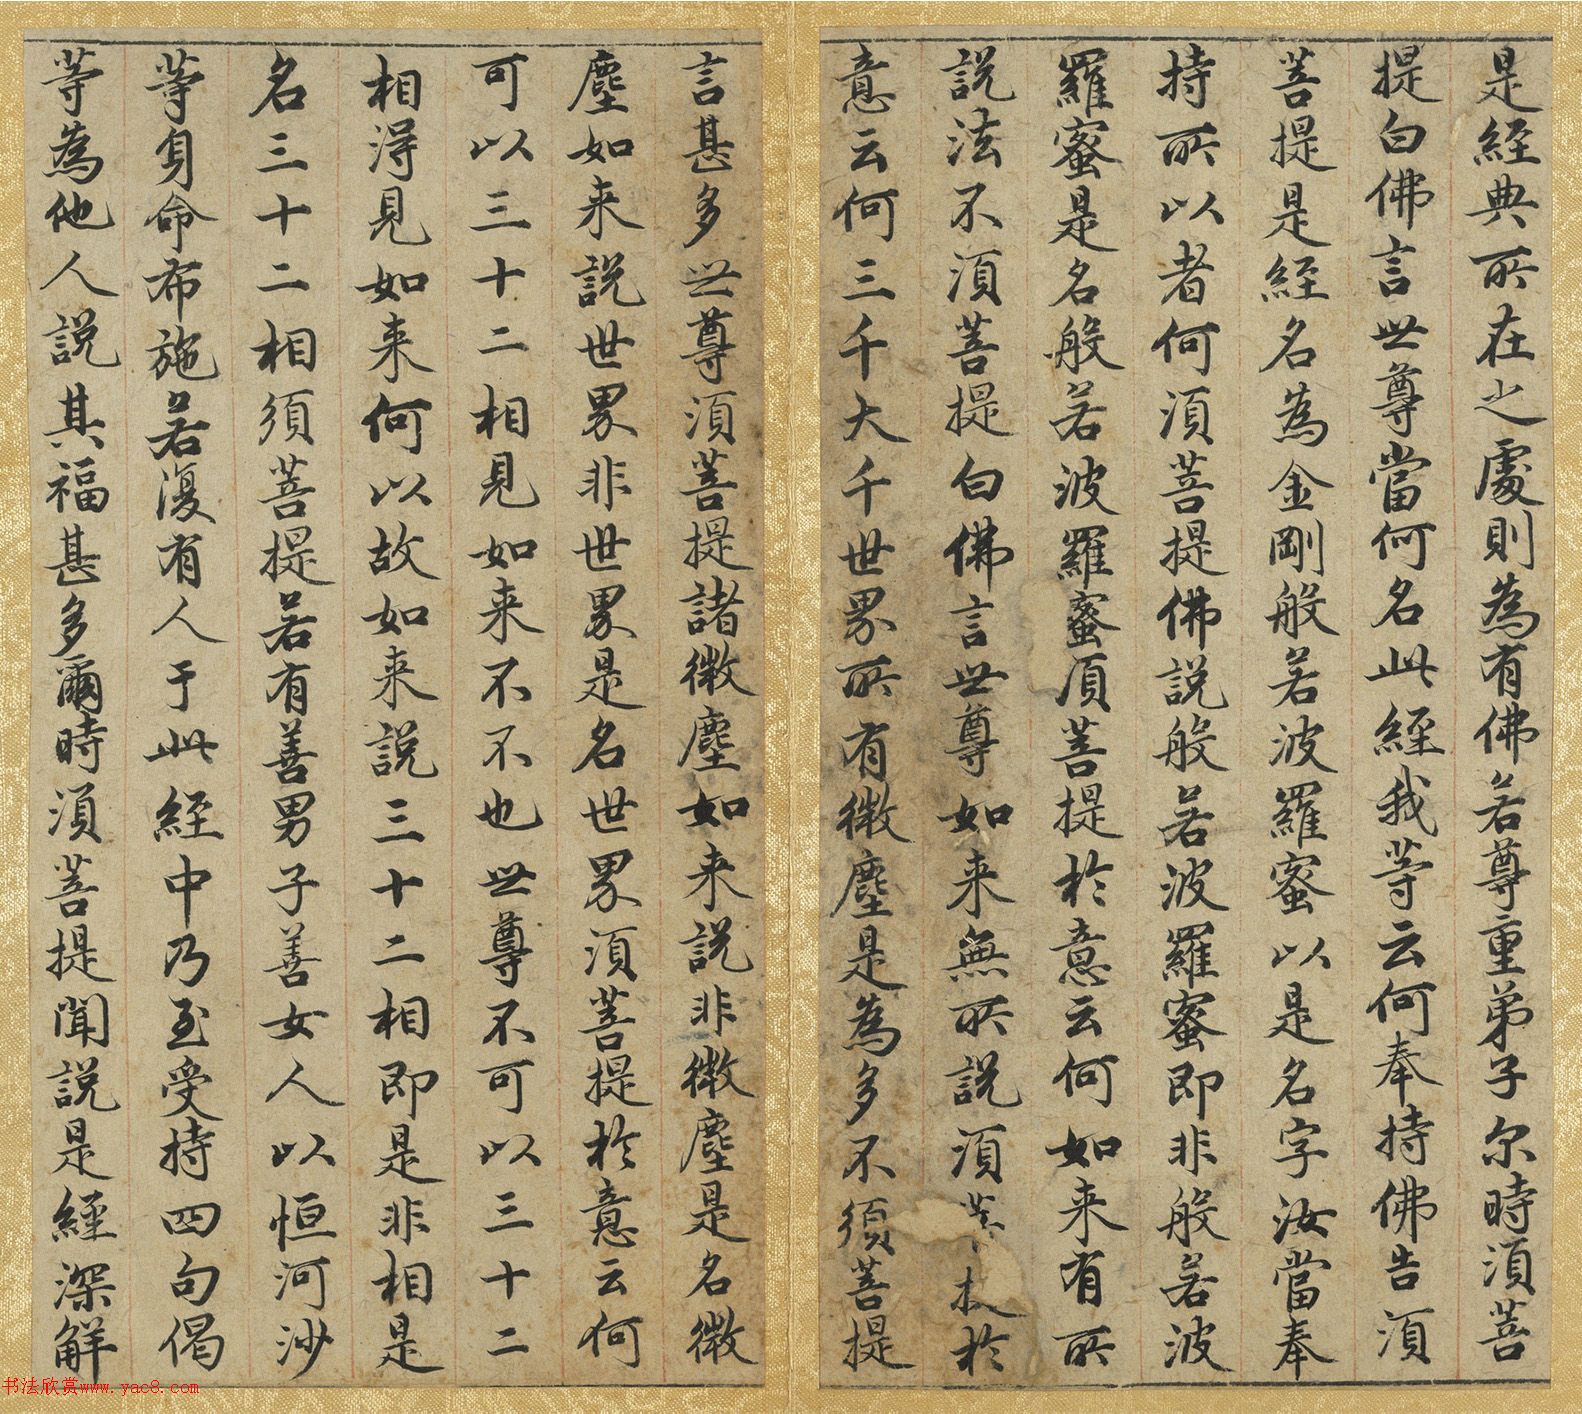 是經典所在之處則為有佛若尊重弟子尔時須菩
提白佛言世尊當何名此經我等云何奉持佛告須
菩提是經名為金剛般若波羅蜜以是名字汝當奉
持所以者何須菩提佛說般若波羅蜜即非般若波
羅蜜是名般若波羅蜜須菩提於意云何如来有所
說法不須菩提白佛言世尊如来無所說須菩提於
意云何三千大千世界所有微塵是為多不須菩提
言甚多世尊須菩提諸微塵如来說非微塵是名微
塵如来說世界非世界是名世界須菩提於意云何
可以三十二相見如来不不也世尊不可以三十二
相得見如来何以故如来說三十二相即是非相是
名三十二相須菩提若有善男子善女人以恒河沙
等身命布施若復有人于此經中乃至受持四句偈
等為他人說其福甚多爾時須菩提聞說是經深解
书法欣赏www.yac8.com